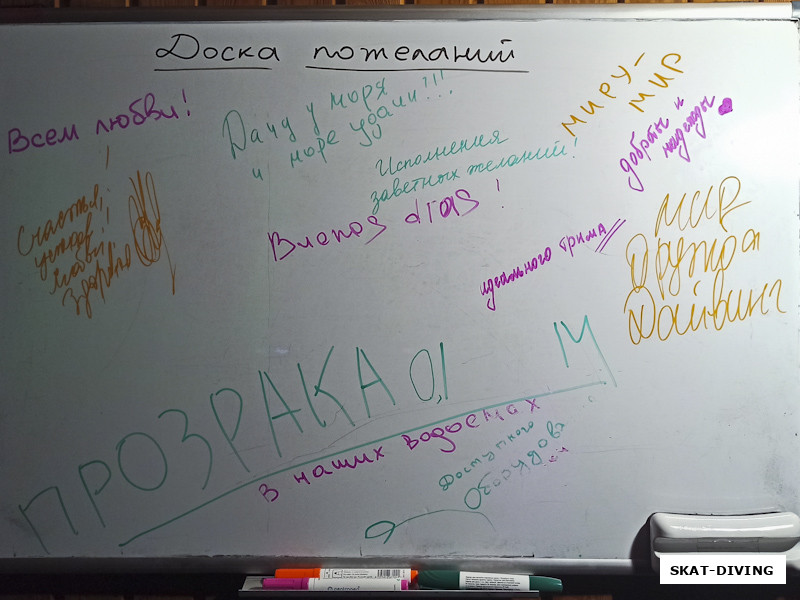 Доска пожеланий
Всем любви!
Дачу у моря
и море удачи!!!
Исполнения
заветных желаний!
МИРУ-
МИР
добраты и
надежды
Счастья,
успехов,
любви,
здоровья
Buenos dias!
идеального трима
МИР
Дружба
Дайвинг
ПРОЗРАКА 0,1 М
в наших водоемах
Доступного
SKAT-DIVING